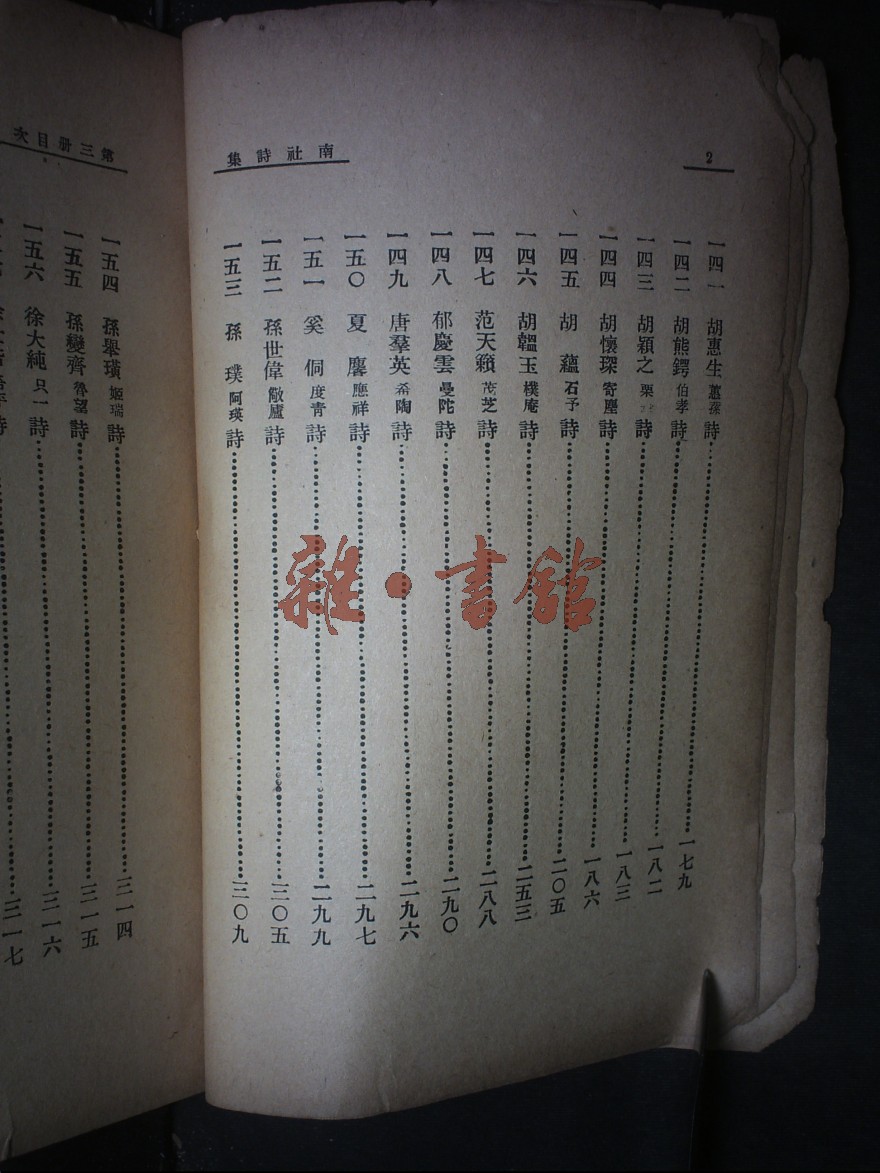 2
南社詩集
一四一 胡惠生 蕙蓀 詩 一七九
一四二 胡熊鍔 伯孝 詩 一八二
一四三 胡穎之 栗 詩 一八三
一四四 胡懷琛 寄塵 詩 一八六
一四五 胡蘊 石予 詩 二〇五
一四六 胡韞玉 樸庵 詩 二五三
一四七 范天籟 茂芝 詩 二八八
一四八 郁慶雲 曼陀 詩 二九〇
一四九 唐羣英 希陶 詩 二九六
一五〇 夏麐 應祥 詩 二九七
一五一 奚侗 度青 詩 二九九
一五二 孫世偉 敵廬 詩 三〇五
一五三 孫璞 阿瑛 詩 三〇九
第三册目次
一五四 孫舉璜 姬瑞 詩 三一四
一五五 孫變齊 望 詩 三一五
一五六 徐大純 只一 詩 三一六
詩 三一七
雜·書館